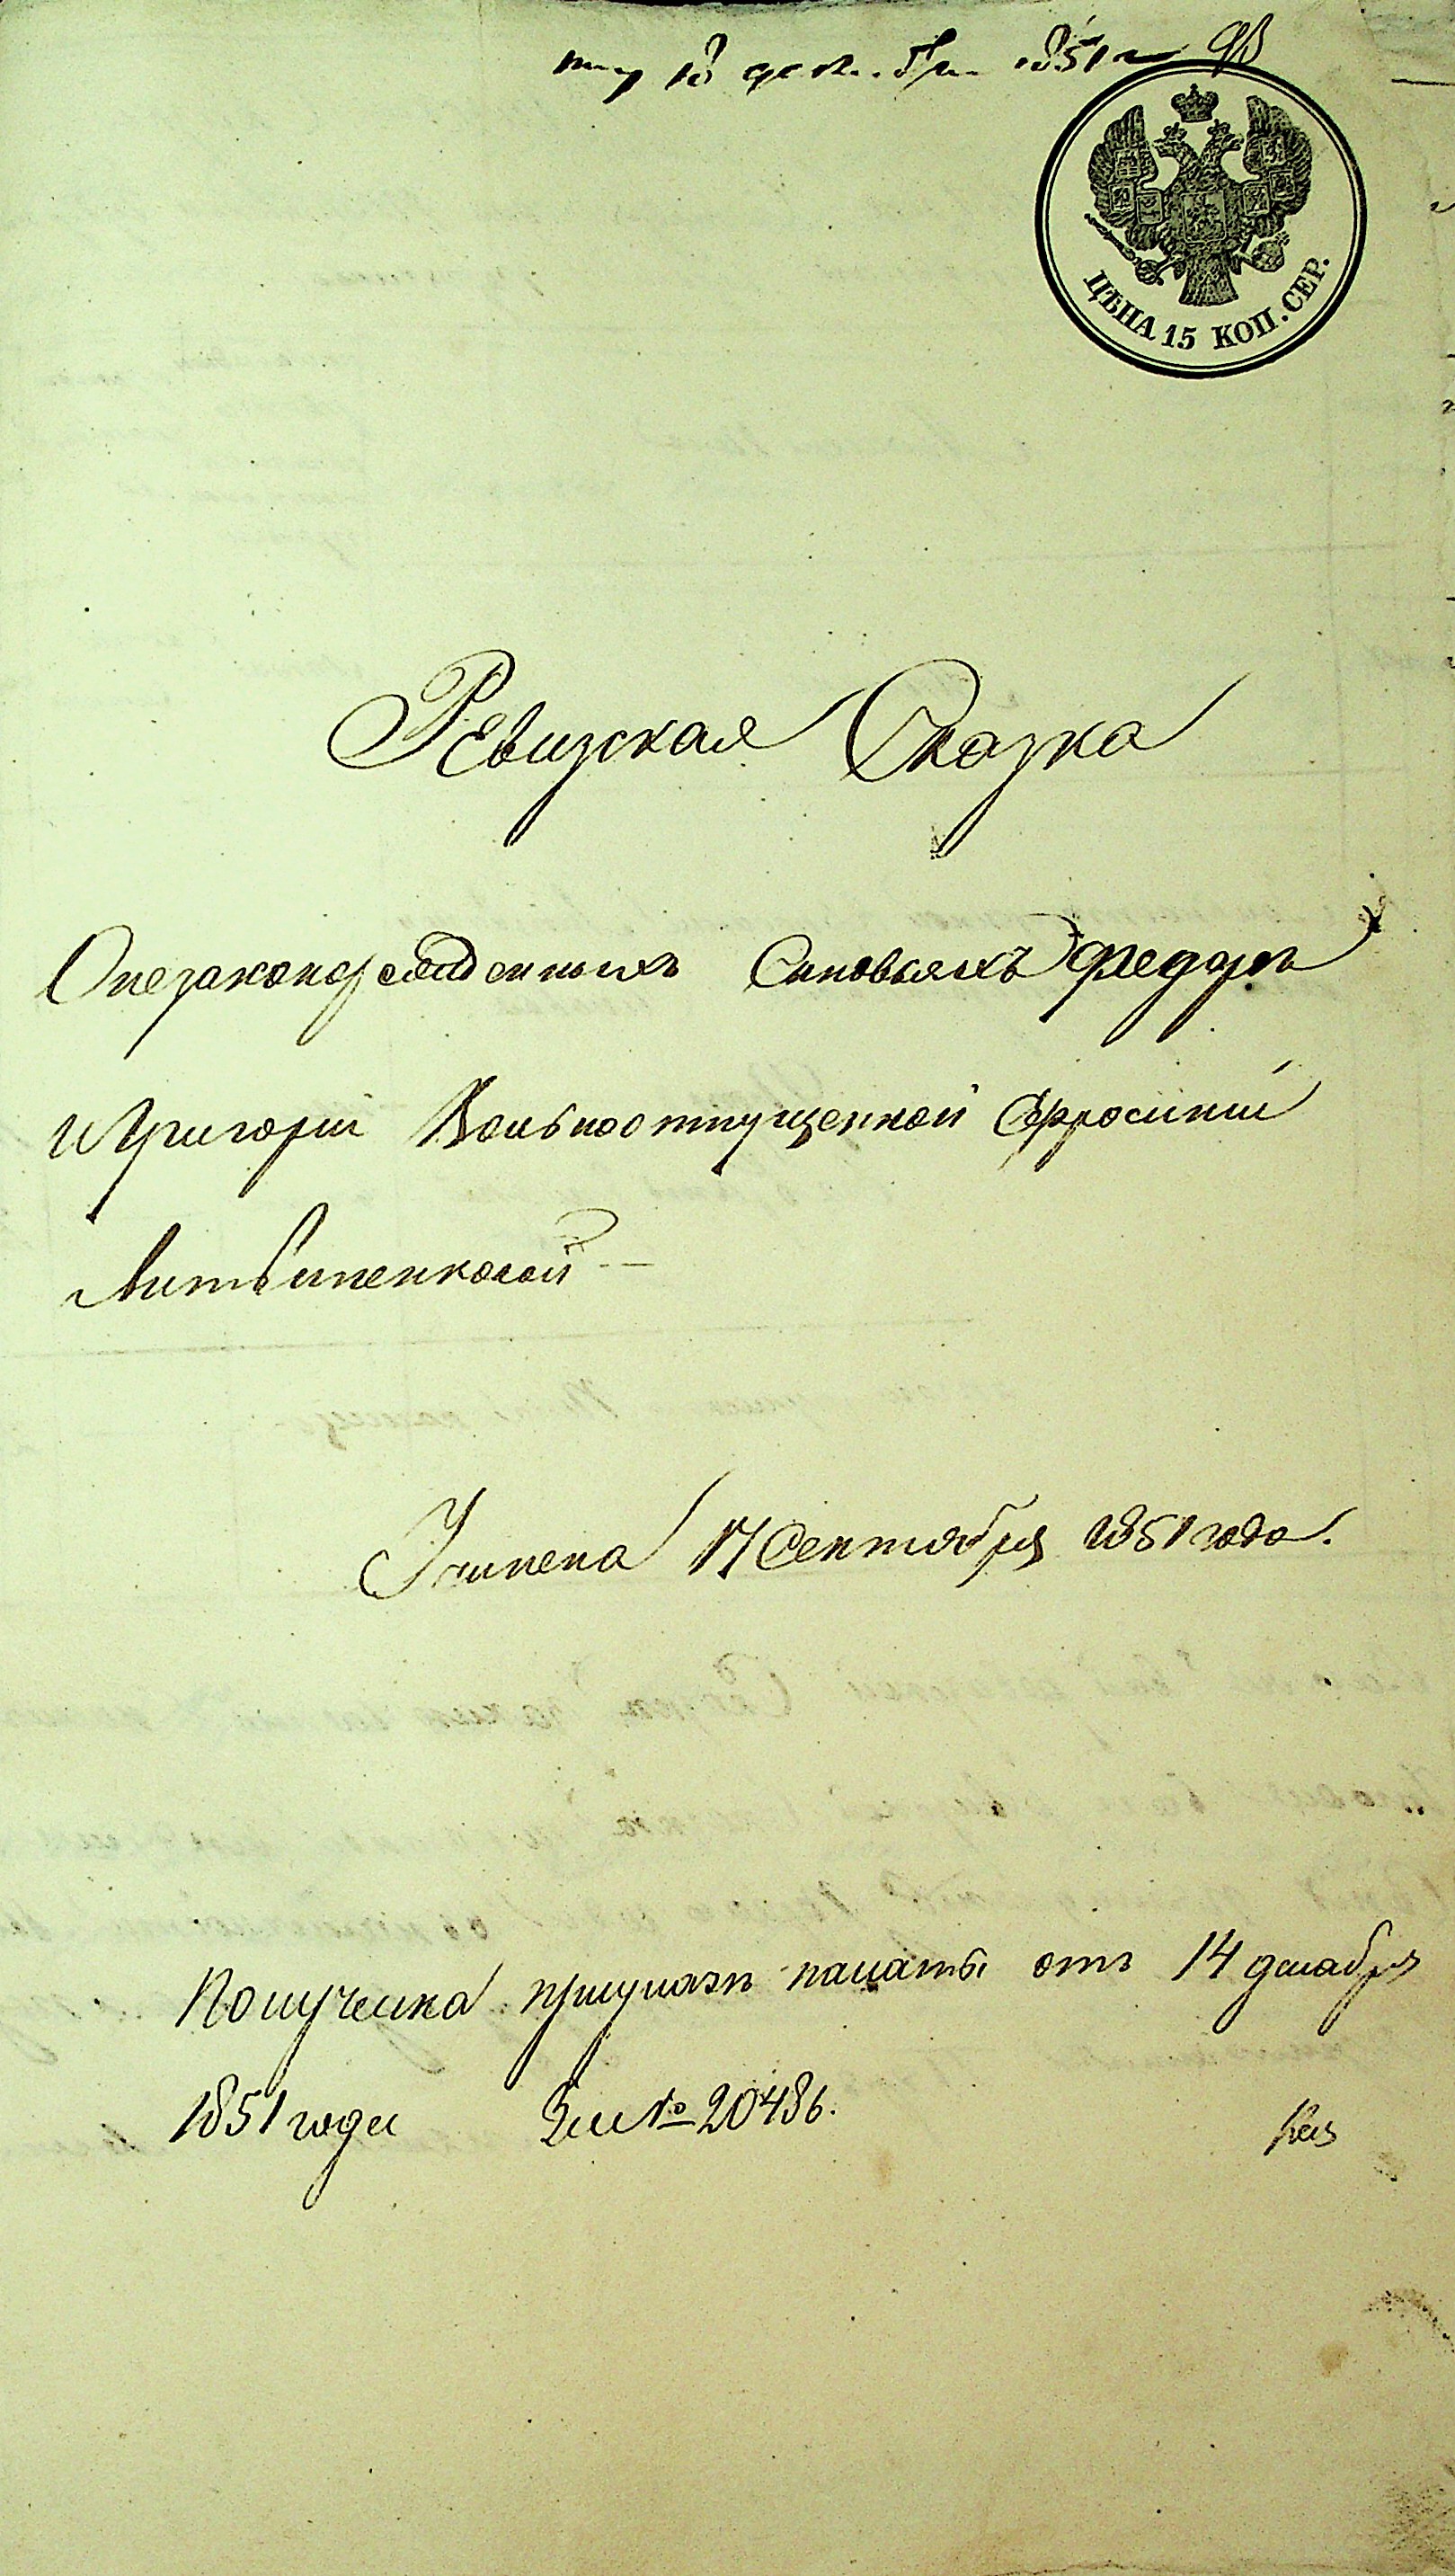 18 декабря 1851
ЦѢНА 15 КОП. СЕР.
Ревизская Сказка
О незаконорожденныхъ Сыновьяхъ Федорѣ
и Григоріи Вольноотпущенной Ефросиніи
Литвиненковой
Учинена 17 Сентября 1851 года.
Получена при указѣ палаты отъ 14 декабря
1851 года За № 20486.